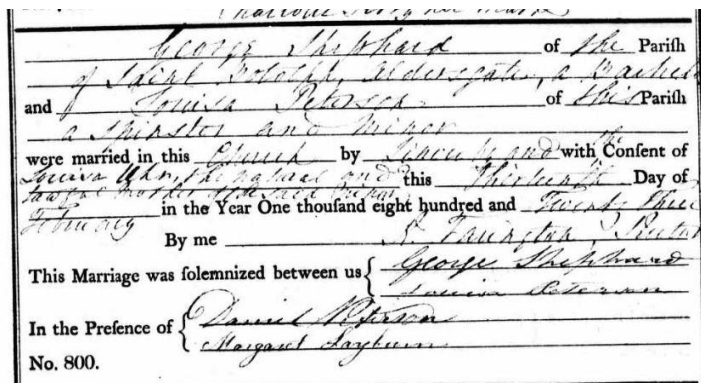 George Shephard of the Parish
of Saint Botolph, Aldersgate, a Bachel
and Louisa Peterson of this Parish
a Spinster and Minor
were married in this Church by Licence and with Consent of
the
Louisa the natural and this thirteenth Day of
lawful Mother of the said
February in the Year One thouſand eight hundred and Twenty three
By me R. Farington, Rector
This Marriage was ſolemnized between us { George Shephard
Louisa Peterson
In the Preſence of { Daniel Peterson
Margaret
No. 800.